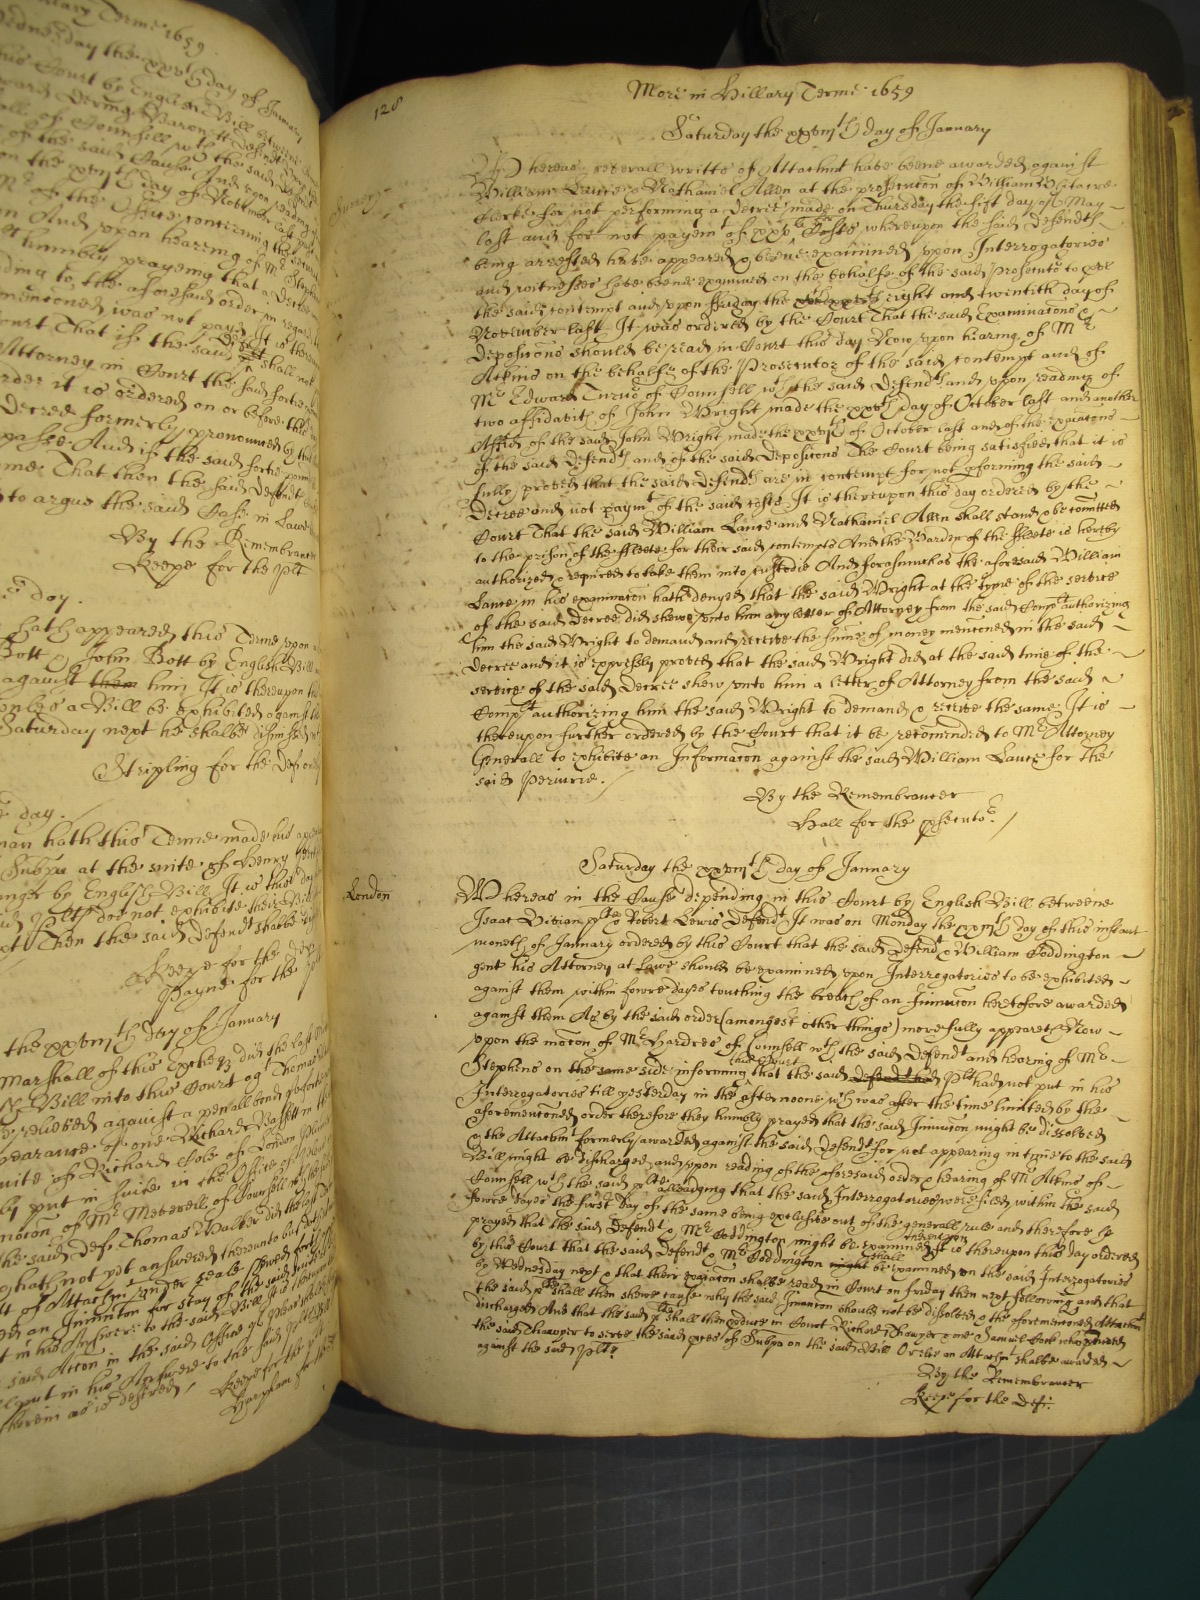 llary Terme 1659
Wednesday the xxvth day of January
this Court by English Bill betweene
ward Dering Baronett Defendt
all of Counsell wth the said Defend
of the said Cause And upon reading
on the xvith day of November last past
Mr of the Office concerning the
n And upon hearing of Mr Stephens
humbly prayeing that a Decree
ding to the aforesaid order in regard
mencioned was not payd It is there
Court That if the said shall not
Attorney in Court the said fortie
order it is ordered on or before the
Decree formerly pronounced by this
passe And if the said fortie pounds
me That then the said Defendt
to argue the said Case in Lawe
By the Remembrancer
Keepe for the Plt
e day.
hath appeared this Terme upon a
Bott & John Bott by English Bill
against them him It is thereupon this
onles a Bill be exhibited against
Saturday next he shalbe dismissed
Stripling for the Def
e day.
man hath this Terme made his app
Subpa at the suite of Henry
nger by English Bill It is this day
id Plts doe not exhibite their Bill
xt Then the said Defendt shalbe dis
Keepe for the Def
Payne for the Pl
the xxviijth day of January
Marshall of this Excheqr did the last
Bill into this Court agt Thomas
releived against a penall bond
pearance of one Richard Bassett in the
uite of Richard Cole of London
by put in suite in the Office of
mocion of Mr Meverell of Counsell wth the
the said Deft Thomas Walker did the last
hath not yet answered thereunto but
t of Attachmt under seale
an Iniunccon for stay of the said suite
t in his Answere to the said Bill It is thereupon
said Accon in the said Office of
put in his Answere to the said Plts Bill
therein as is desired /
Keepe for the
Harpham for
128
More in Hillary Terme 1659
Saturday the xxviijth day of January
Surrey
Whereas severall writts of Attachmt have beene awarded against
William Lance & Nathaniel Allen at the prosecucon of William Whitacre
Clerke for not performing a Decree made on Thursday the first day of May
last and for not paymt of xxxs Costs whereupon the said Defendts
being arrested have appeared & beene examined upon Interrogatories
and witnesses have beene examined on the behalfe of the said Prosecutor to prove
the said contempt and upon Friday the eight and twentith day of
November last It was ordered by the Court That the said Examinacons &
Deposicons should be read in Court this day Now upon hearing of Mr
Atkins on the behalfe of the Prosecutor of the said contempt and of
Mr Edward Turnor of Counsell wth the said Defendts and upon reading of
two affidavits of John Wright made the xxvth day of October last and another
Affidt of the said John Wright made the xxviijth of October last and of the Exiacons
of the said Defendts and of the said Deposicons The Court being satisfied that it is
fully proved that the said Defendts are in contempt for not pforming the said
Decree and not paymt of the said costs It is thereupon this day ordered by the
Court That the said William Lance and Nathaniel Allen shall stand & be comitted
to the prison of the Fleete for their said contempts And the Warden of the Fleete is hereby
authorized & required to take them into custodie And forasmuch as the aforesaid William
Lance in his examinacon hath denyed that the said Wright at the tyme of the service
of the said Decree did shewe unto him any letter of Attorney from the said Complt authorizing
him the said Wright to demand and receive the sume of money mencioned in the said
Decree and it is expressly proved that the said Wright did at the said time of the
service of the said Decree shew unto him a letter of Attorney from the said
Complt authorizing him the said Wright to demand & receive the same It is
thereupon further ordered by the Court that it be recomended to Mr Attorney
Generall to exhibite an Informacon against the said William Lance for the
said periurie. /
By the Remembrancer
Hall for the psecutor /
Saturday the xxviijth day of January
London
Whereas in the Cause depending in this Court by English Bill betweene
Isaac Vivian plte & Robert Lewis Defendt It was on Monday the day of this instant
moneth of January ordered by this Court that the said Defendt & William Coddington
gent his Attorney at Lawe should be examined upon Interrogatories to be exhibited
against them within fowre dayes touching the breach of an Iniunccon heretofore awarded
against them As by the said order (amongest other things) more fully appeareth Now
upon the mocon of Mr Hardres of Counsell wth the said Defendt and hearing of Mr
Stephens on the same side informing this Court that the said Defendt had Plt had not put in his
Interrogatories till yesterday in the afternoone wch was after the time limited by the
aforemencioned order therefore they humbly prayed that the said Iniunccon might be dissolved
& the Attachmt formerly awarded against the said Defendt for not appearing in tyme to the said
Bill might be discharged and upon reading of the aforesaid order & hearing of Mr Atkins of
Counsell wth the said plte alleadging that the said Interrogatories were filed within the said
fowre dayes the first day of the same being exclusive out of the generall rule and therefore he
prayed that the said Defendt & Mr Coddington might be examined thereupon It is thereupon this day ordered
by this Court that the said Defendt & Mr Coddington might shall be examined on the said Interrogatories
by Wednesday next & that their exiacon shalbe read in Court on Friday then next following and that
the said plte shall then shewe cause why the said Iniunccon should not be dissolved & the aforemencioned Attachmt
discharged And that the said plte shall then pduce in Court Richard Thawyer & one Samuel Cock who
the said Thawyer to serve the said pces of Subpa on the said Bill Or else an Attachmt shalbe awarded
against the said Plte
By the Remembrancer
Keepe for the Deft: